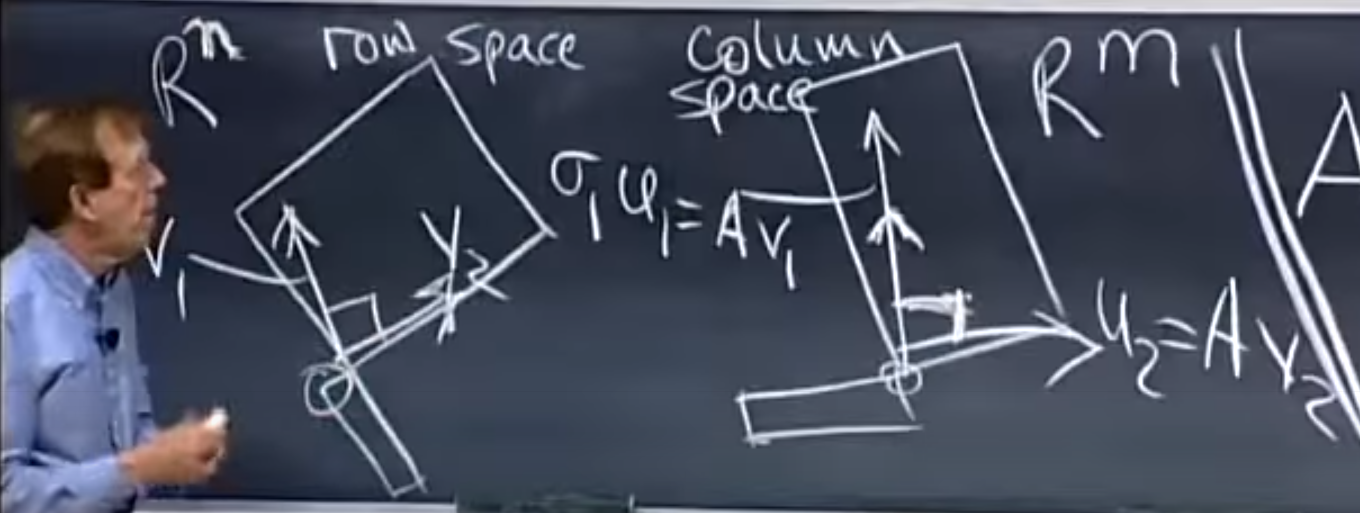 Rⁿ row space
column space
Rᵐ
v₁
v₂
σ₁u₁ = Av₁
u₂ = Av₂
A